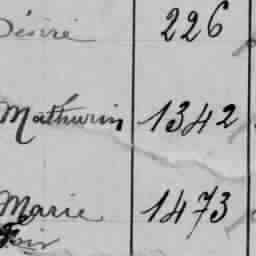 Désiré 226
Mathurin 1342
Marie 1473